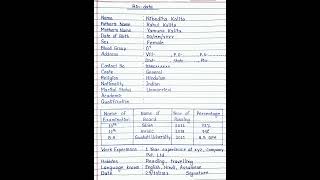 Bio-data
Name : Nibedita Kalita
Father's Name : Rahul Kalita
Mother's Name : Yamuna Kalita
Date of Birth :
Sex : Female
Blood Group : O+
Address : Vill- , P.O- , P.S-
Dist- , State- , Pin-
Contact No :
Caste : General
Religion : Hinduism
Nationality : Indian
Marital Status : Unmarried
Academic
Qualification :
Name of Examination Name of Board Year of Passing Percentage
10th
12th
B.A Gauhati University
Work Experience : 1 Year experience at xyz, Company
Pvt. Ltd
Hobbies : Reading, travelling
Language known : English, Hindi, Assamese
Date : Signature